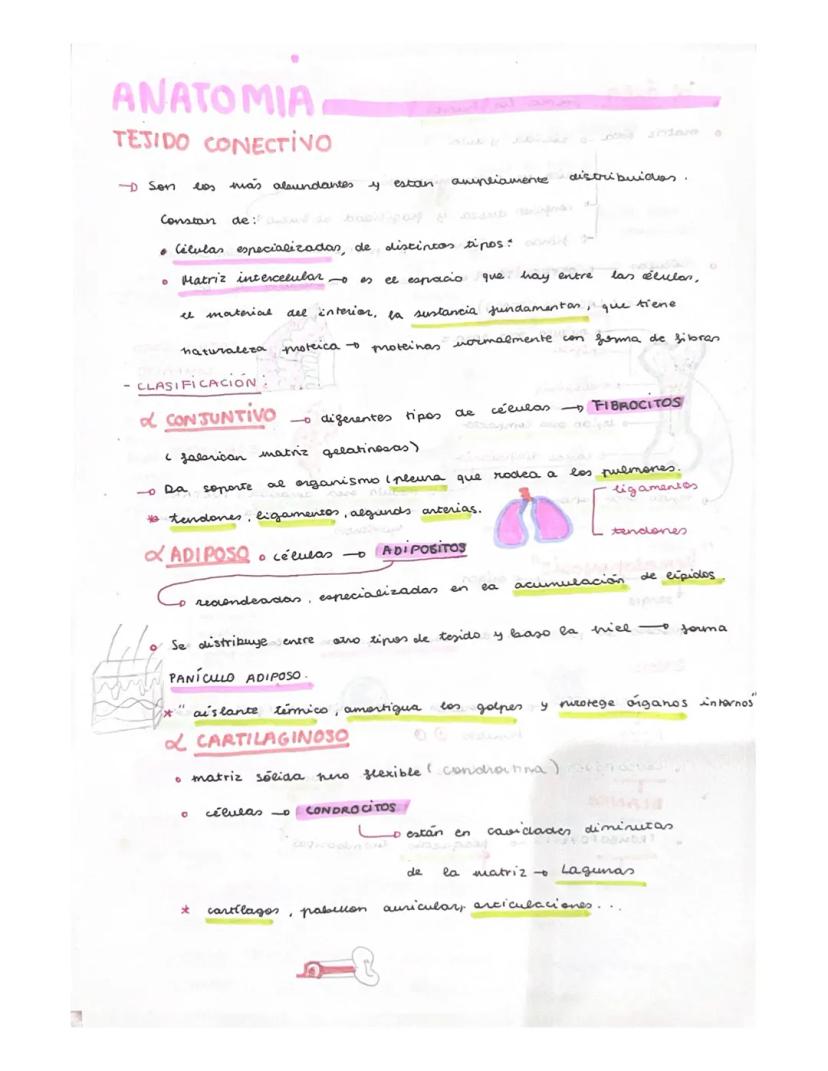 ANATOMIA
TEJIDO CONECTIVO
→ Son los más abundantes y estan ampliamente distribuidos.
Constan de:
• Células especializadas, de distintos tipos:
• Matriz intercelular → es el espacio que hay entre las células,
el material del interior, la sustancia fundamentas, que tiene
naturaleza proteica → proteinas normalmente con forma de fibras
- CLASIFICACIÓN:
α CONJUNTIVO → diferentes tipos de células → FIBROCITOS
( fabrican matriz gelatinosas)
→ Da soporte al organismo (pleura que rodea a los pulmones.
* tendones, ligamentos, algunas arterias.
ligamentos
tendones
α ADIPOSO • células → ADIPOSITOS
→ redondeadas, especializadas en la acumulación de lípidos.
• Se distribuye entre otro tipos de tejido y bajo la piel → forma
PANÍCULO ADIPOSO.
* " aislante térmico, amortigua los golpes y protege órganos internos"
α CARTILAGINOSO
• matriz sólida pero flexible ( condroitina )
• células → CONDROCITOS
→ están en cavidades diminutas
de la matriz → Lagunas
* cartílagos, pabellon auricular, articulaciones...